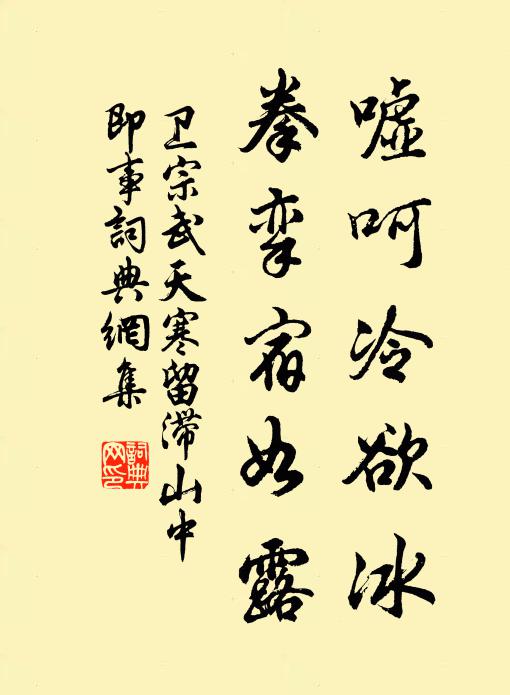 嘘呵冷欲冰
拳挛宿如露
卫宗武天寒留滞山中
即事詞典網集
詞典网印